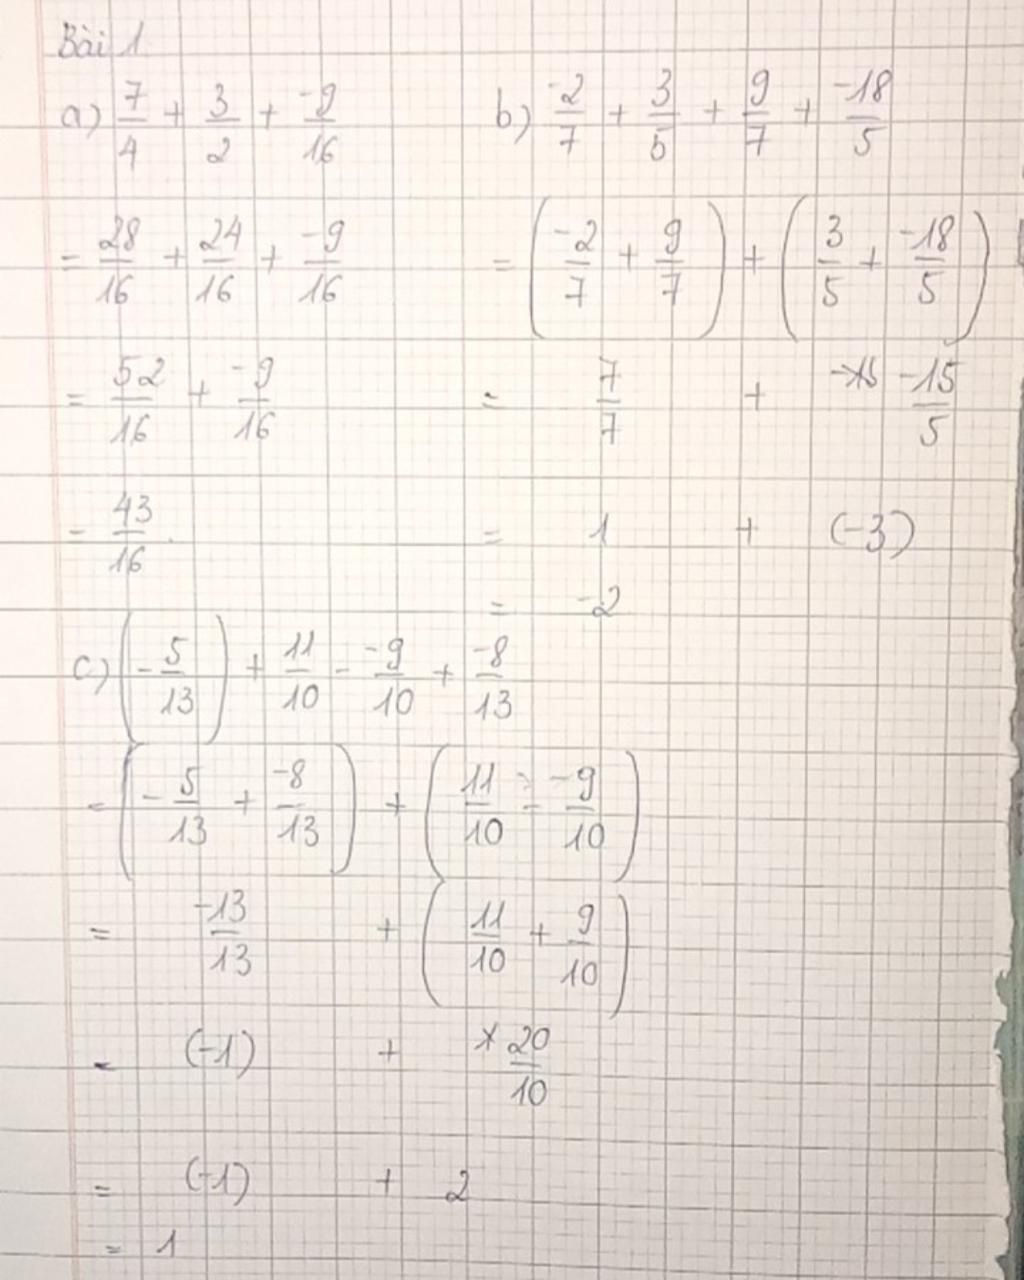 Bài 1
a) 7/4 + 3/2 + -9/16
= 28/16 + 24/16 + -9/16
= 52/16 + -9/16
= 43/16.
b) -2/7 + 3/5 + 9/7 + -18/5
= (-2/7 + 9/7) + (3/5 + -18/5)
= 7/7 + -15/5
= 1 + (-3)
= -2
c) (-5/13) + 11/10 - -9/10 + -8/13
= (-5/13 + -8/13) + (11/10 - -9/10)
= -13/13 + (11/10 + 9/10)
= (-1) + 20/10
= (-1) + 2
= 1